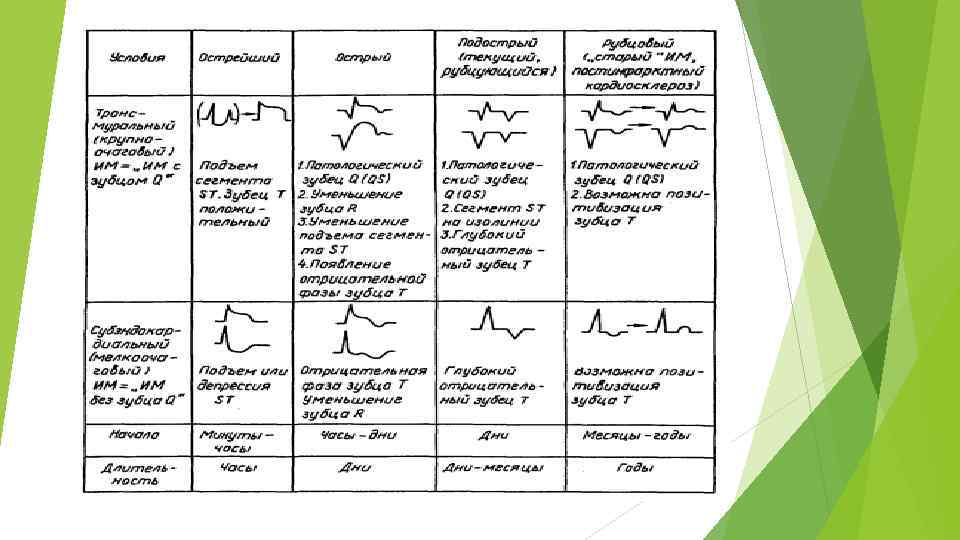 Условия
Острейший
Острый
Подострый
(текущий,
рубцующийся)
Рубцовый
(„старый" ИМ,
постинфарктный
кардиосклероз)
Транс-
муральный
(крупно-
очаговый)
ИМ=„ИМ с
зубцом Q"
Подъем
сегмента
ST. Зубец T
положи-
тельный
1. Патологический
зубец Q (QS)
2. Уменьшение
зубца R
3. Уменьшение
подъема сегмен-
та ST
4. Появление
отрицательной
фазы зубца T
1. Патологиче-
ский зубец
Q (QS)
2. Сегмент ST
на изолинии
3. Глубокий
отрицатель-
ный зубец T
1. Патологический
зубец Q (QS)
2. Возможна пози-
тивизация
зубца T
Субэндокар-
диальный
(мелкооча-
говый)
ИМ=„ИМ
без зубца Q"
Подъем или
депрессия
ST
Отрицательная
фаза зубца T
Уменьшение
зубца R
Глубокий
отрицатель-
ный зубец T
Возможна пози-
тивизация
зубца T
Начало
Минуты-
часы
Часы-дни
Дни
Месяцы-годы
Длитель-
ность
Часы
Дни
Дни-месяцы
Годы